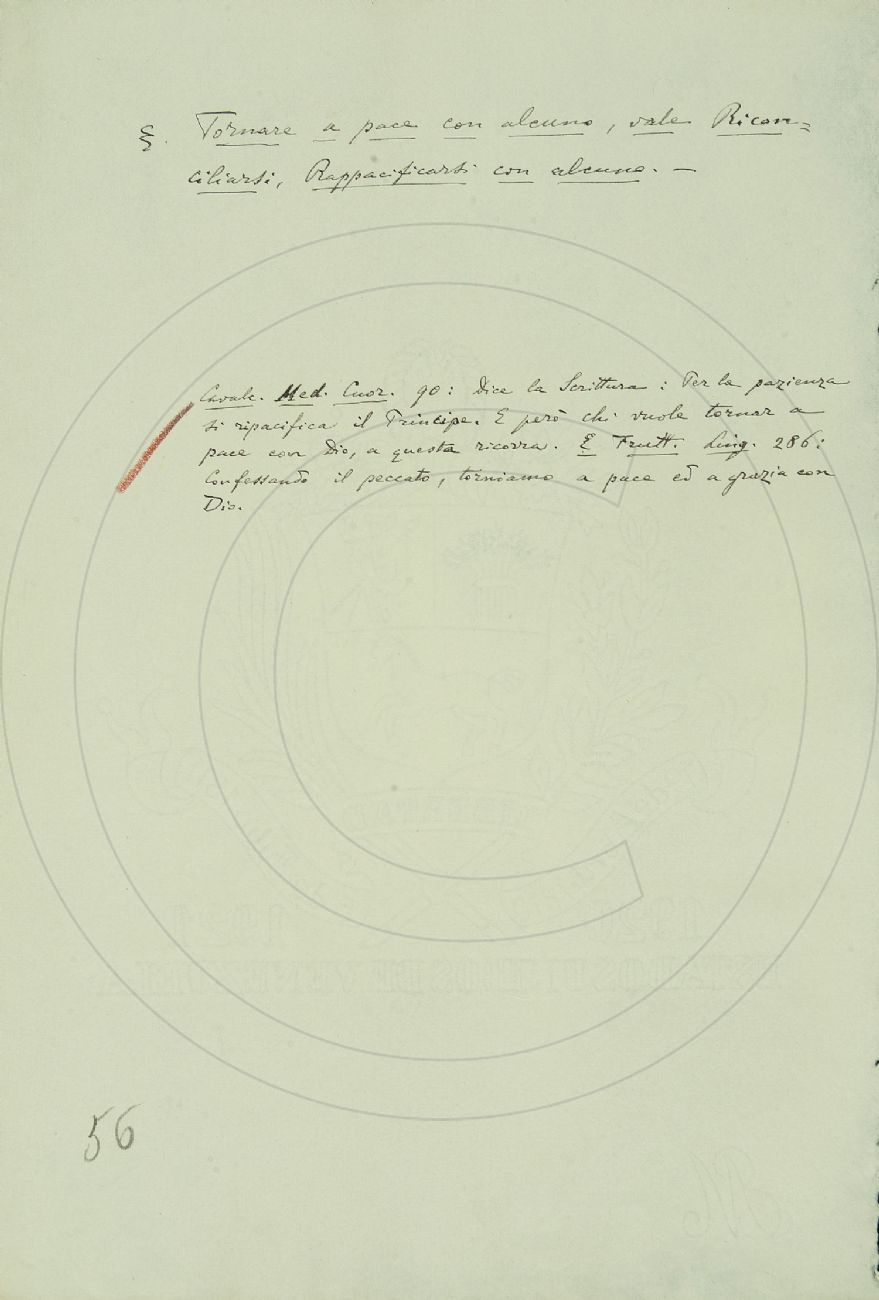 §. Tornare a pace con alcuno, vale Ricon=
ciliarsi, Rappacificarsi con alcuno. —
Cavalc. Med. Cuor. 90: Dice la Scrittura: Per la pazienza
si ripacifica il Principe. E però chi vuole tornar a
pace con Dio, a questa ricorra. E Frutt. Ling. 286:
Confessando il peccato, torniamo a pace ed a grazia con
Dio.
56